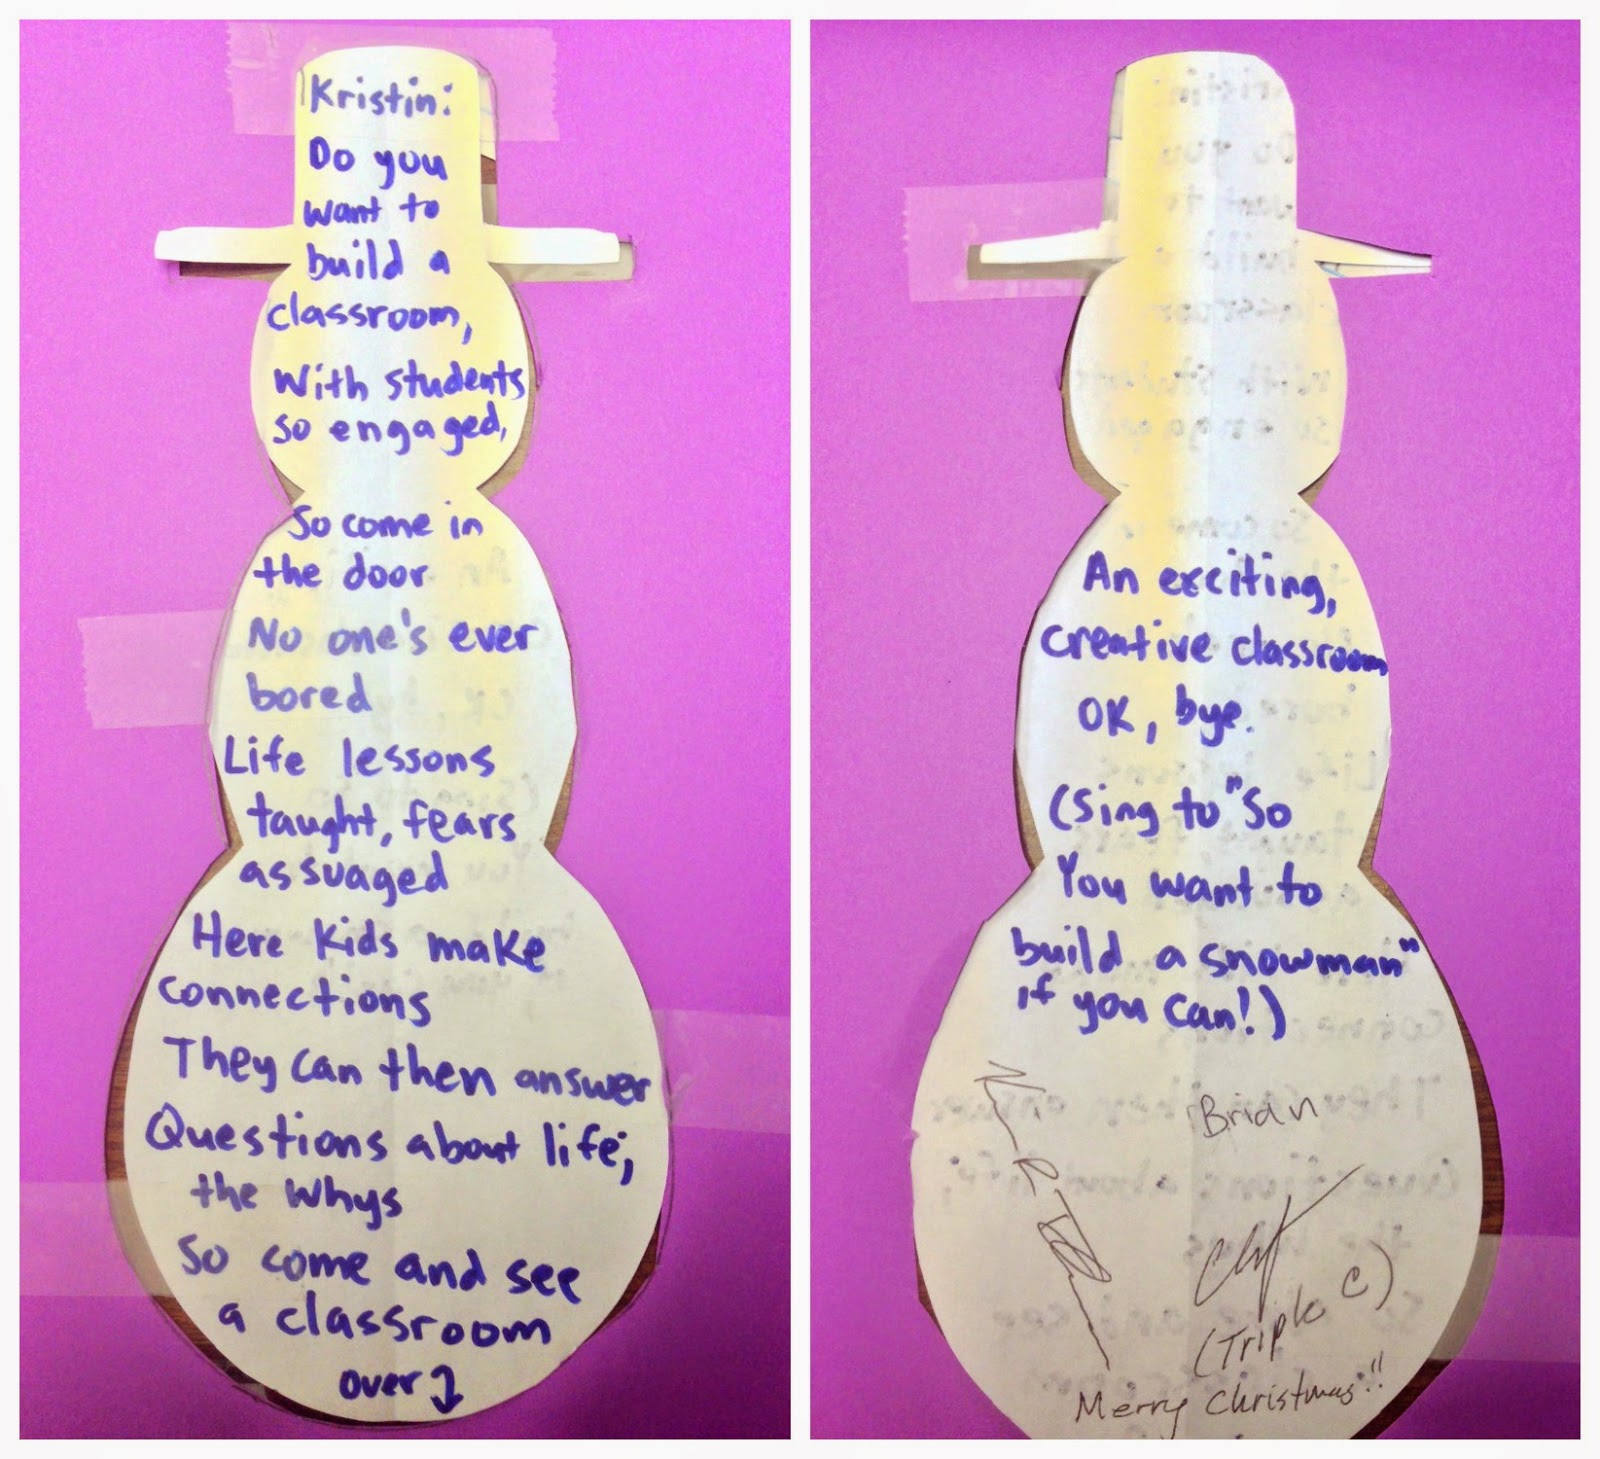 Kristin:
Do you
want to
build a
classroom,
With students
so engaged,
So come in
the door
No one's ever
bored
Life lessons
taught, fears
assuaged
Here kids make
connections
They can then answer
Questions about life;
the whys
So come and see
a classroom
over
An exciting,
creative classroom
OK, bye.
(Sing to "So
You want to
build a snowman"
if you can!)
Brian
(Triple C)
Merry Christmas!!